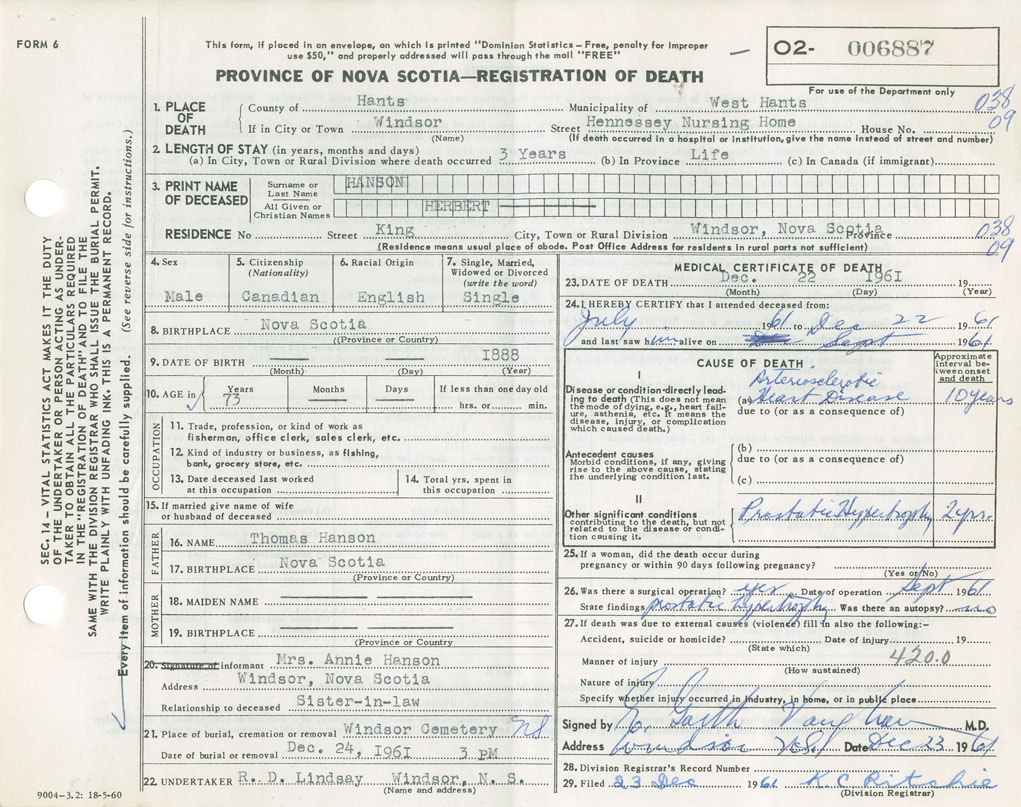 FORM 6
This form, if placed in an envelope, on which is printed "Dominion Statistics – Free, penalty for improper
use $50," and properly addressed will pass through the mail "FREE"
O2- 006887
For use of the Department only
PROVINCE OF NOVA SCOTIA—REGISTRATION OF DEATH
SEC. 14 – VITAL STATISTICS ACT MAKES IT THE DUTY
OF THE UNDERTAKER OR PERSON ACTING AS UNDER-
TAKER TO OBTAIN ALL THE PARTICULARS REQUIRED
IN THE "REGISTRATION OF DEATH" AND TO FILE THE
SAME WITH THE DIVISION REGISTRAR WHO SHALL ISSUE THE BURIAL PERMIT.
WRITE PLAINLY WITH UNFADING INK. THIS IS A PERMANENT RECORD.
Every item of information should be carefully supplied. (See reverse side for instructions.)
1. PLACE OF DEATH
County of Hants Municipality of West Hants 038
If in City or Town Windsor Street Hennessey Nursing Home House No. 09
(Name) (If death occurred in a hospital or institution, give the name instead of street and number)
2. LENGTH OF STAY (in years, months and days)
(a) In City, Town or Rural Division where death occurred 3 Years (b) In Province Life (c) In Canada (if immigrant)
3. PRINT NAME OF DECEASED
Surname or Last Name HANSON
All Given or Christian Names HERBERT
RESIDENCE No Street King City, Town or Rural Division Windsor, Nova Scotia Province 038
(Residence means usual place of abode. Post Office Address for residents in rural parts not sufficient) 09
4. Sex Male
5. Citizenship (Nationality) Canadian
6. Racial Origin English
7. Single, Married, Widowed or Divorced (write the word) Single
8. BIRTHPLACE Nova Scotia
(Province or Country)
9. DATE OF BIRTH 1888
(Month) (Day) (Year)
10. AGE in Years 73 Months Days If less than one day old hrs. or min.
OCCUPATION
11. Trade, profession, or kind of work as
fisherman, office clerk, sales clerk, etc.
12. Kind of industry or business, as fishing,
bank, grocery store, etc.
13. Date deceased last worked
at this occupation
14. Total yrs. spent in
this occupation
15. If married give name of wife
or husband of deceased
FATHER
16. NAME Thomas Hanson
17. BIRTHPLACE Nova Scotia
(Province or Country)
MOTHER
18. MAIDEN NAME
19. BIRTHPLACE
(Province or Country)
20. Signature of informant Mrs. Annie Hanson
Address Windsor, Nova Scotia
Relationship to deceased Sister-in-law
21. Place of burial, cremation or removal Windsor Cemetery NS
Date of burial or removal Dec. 24, 1961 3 PM
22. UNDERTAKER R. D. Lindsay Windsor, N. S.
(Name and address)
9004–3.2: 18-5-60
MEDICAL CERTIFICATE OF DEATH
23. DATE OF DEATH Dec. 22 1961
(Month) (Day) (Year)
24. I HEREBY CERTIFY that I attended deceased from:
July 1961 to Dec 22 1961
and last saw him alive on Sept 1961
CAUSE OF DEATH
Approximate interval between onset and death
I
Disease or condition directly lead-
ing to death (This does not mean
the mode of dying, e.g., heart fail-
ure, asthenia, etc. It means the
disease, injury, or complication
which caused death.)
Arteriosclerotic
(a) Heart Disease 10 years
due to (or as a consequence of)
Antecedent causes
Morbid conditions, if any, giving
rise to the above cause, stating
the underlying condition last.
(b)
due to (or as a consequence of)
(c)
II
Other significant conditions
contributing to the death, but not
related to the disease or condi-
tion causing it.
Prostatic Hypertrophy 2 yrs.
25. If a woman, did the death occur during
pregnancy or within 90 days following pregnancy?
(Yes or No)
26. Was there a surgical operation? yes Date of operation Sept 1961
State findings prostatic hypertrophy Was there an autopsy? no
27. If death was due to external causes (violence) fill in also the following:–
Accident, suicide or homicide? Date of injury 19
(State which)
Manner of injury 420.0
(How sustained)
Nature of injury
Specify whether injury occurred in industry, in home, or in public place
Signed by Garth Vaughan M.D.
Address Windsor N.S. Date Dec 23 1961
28. Division Registrar's Record Number
29. Filed 23 Dec 1961 K C Ritchie
(Division Registrar)